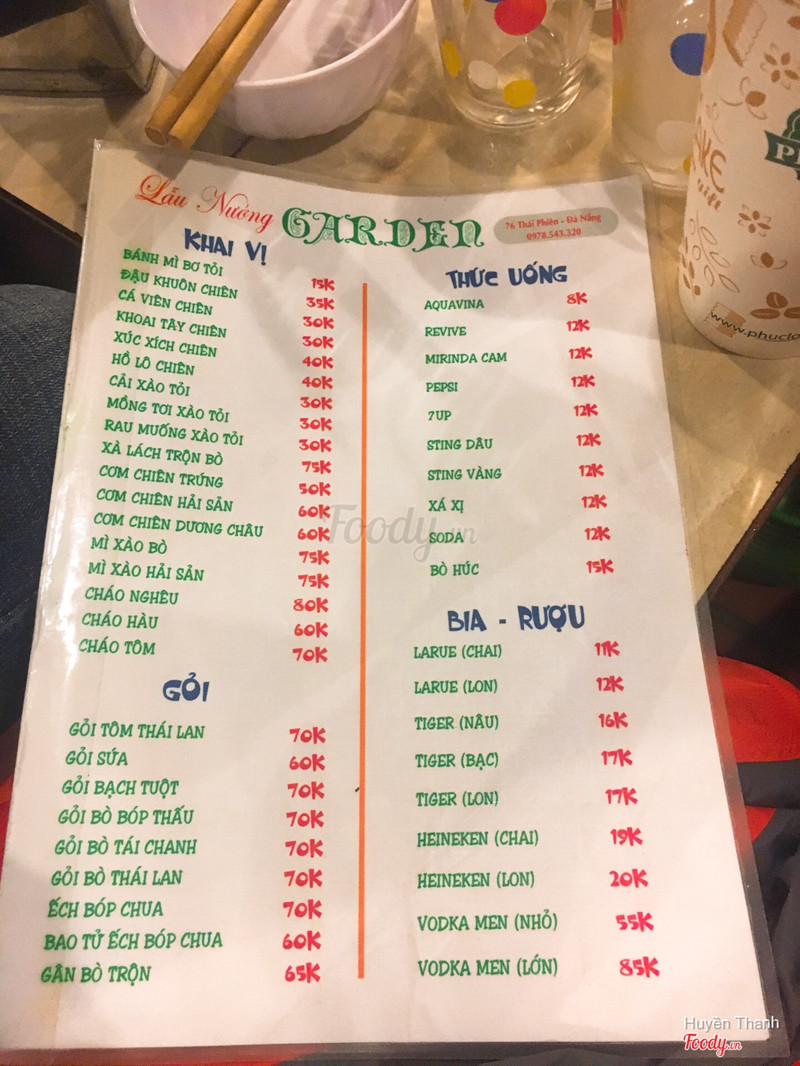 Lẩu Nướng GARDEN
76 Thái Phiên - Đà Nẵng
0978.543.320
KHAI VỊ
BÁNH MÌ BƠ TỎI 15K
ĐẬU KHUÔN CHIÊN 35K
CÁ VIÊN CHIÊN 30K
KHOAI TÂY CHIÊN 30K
XÚC XÍCH CHIÊN 40K
HỒ LÔ CHIÊN 40K
CẢI XÀO TỎI 30K
MỒNG TƠI XÀO TỎI 30K
RAU MUỐNG XÀO TỎI 30K
XÀ LÁCH TRỘN BÒ 75K
CƠM CHIÊN TRỨNG 50K
CƠM CHIÊN HẢI SẢN 60K
CƠM CHIÊN DƯƠNG CHÂU 60K
MÌ XÀO BÒ 75K
MÌ XÀO HẢI SẢN 75K
CHÁO NGHÊU 80K
CHÁO HÀU 60K
CHÁO TÔM 70K
GỎI
GỎI TÔM THÁI LAN 70K
GỎI SỨA 60K
GỎI BẠCH TUỘT 70K
GỎI BÒ BÓP THẤU 70K
GỎI BÒ TÁI CHANH 70K
GỎI BÒ THÁI LAN 70K
ẾCH BÓP CHUA 70K
BAO TỬ ẾCH BÓP CHUA 60K
GÂN BÒ TRỘN 65K
THỨC UỐNG
AQUAVINA 8K
REVIVE 12K
MIRINDA CAM 12K
PEPSI 12K
7UP 12K
STING DÂU 12K
STING VÀNG 12K
XÁ XỊ 12K
SODA 12K
BÒ HÚC 15K
BIA - RƯỢU
LARUE (CHAI) 11K
LARUE (LON) 12K
TIGER (NÂU) 16K
TIGER (BẠC) 17K
TIGER (LON) 17K
HEINEKEN (CHAI) 19K
HEINEKEN (LON) 20K
VODKA MEN (NHỎ) 55K
VODKA MEN (LỚN) 85K
Foody.vn
Huyền Thanh
Foody.vn